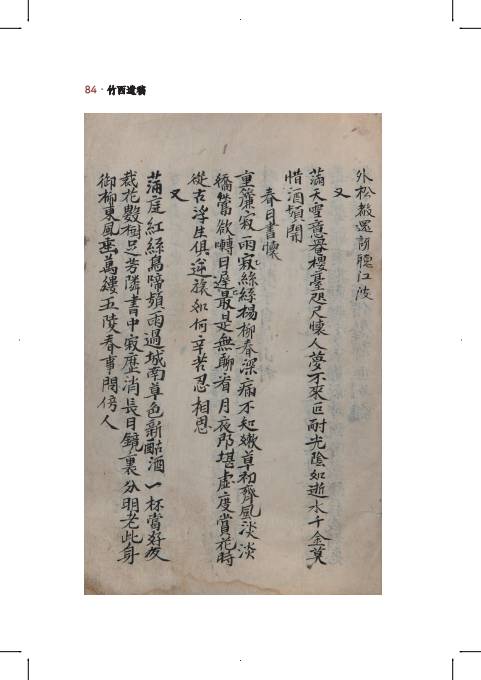 84 · 竹西遺稿
外松聲還訝聽江波
又
滿天雪意暮樓臺咫尺懷人夢不來叵耐光陰如逝水千金莫
惜酒頻開
春日書懷
重簾寂雨寂絲絲楊柳春深病不知嫩草初齊風淡淡
嬌鶯欲囀日遲最是無聊看月夜那堪虛度賞花時
從古浮生俱逆旅如何辛苦忍相思
又
滿庭紅綠鳥啼頻雨過城南草色新酤酒一杯當好友
栽花數樹足芳隣書中寂歷消長日鏡裏分明老此身
御柳東風垂萬縷五陵春事問傍人